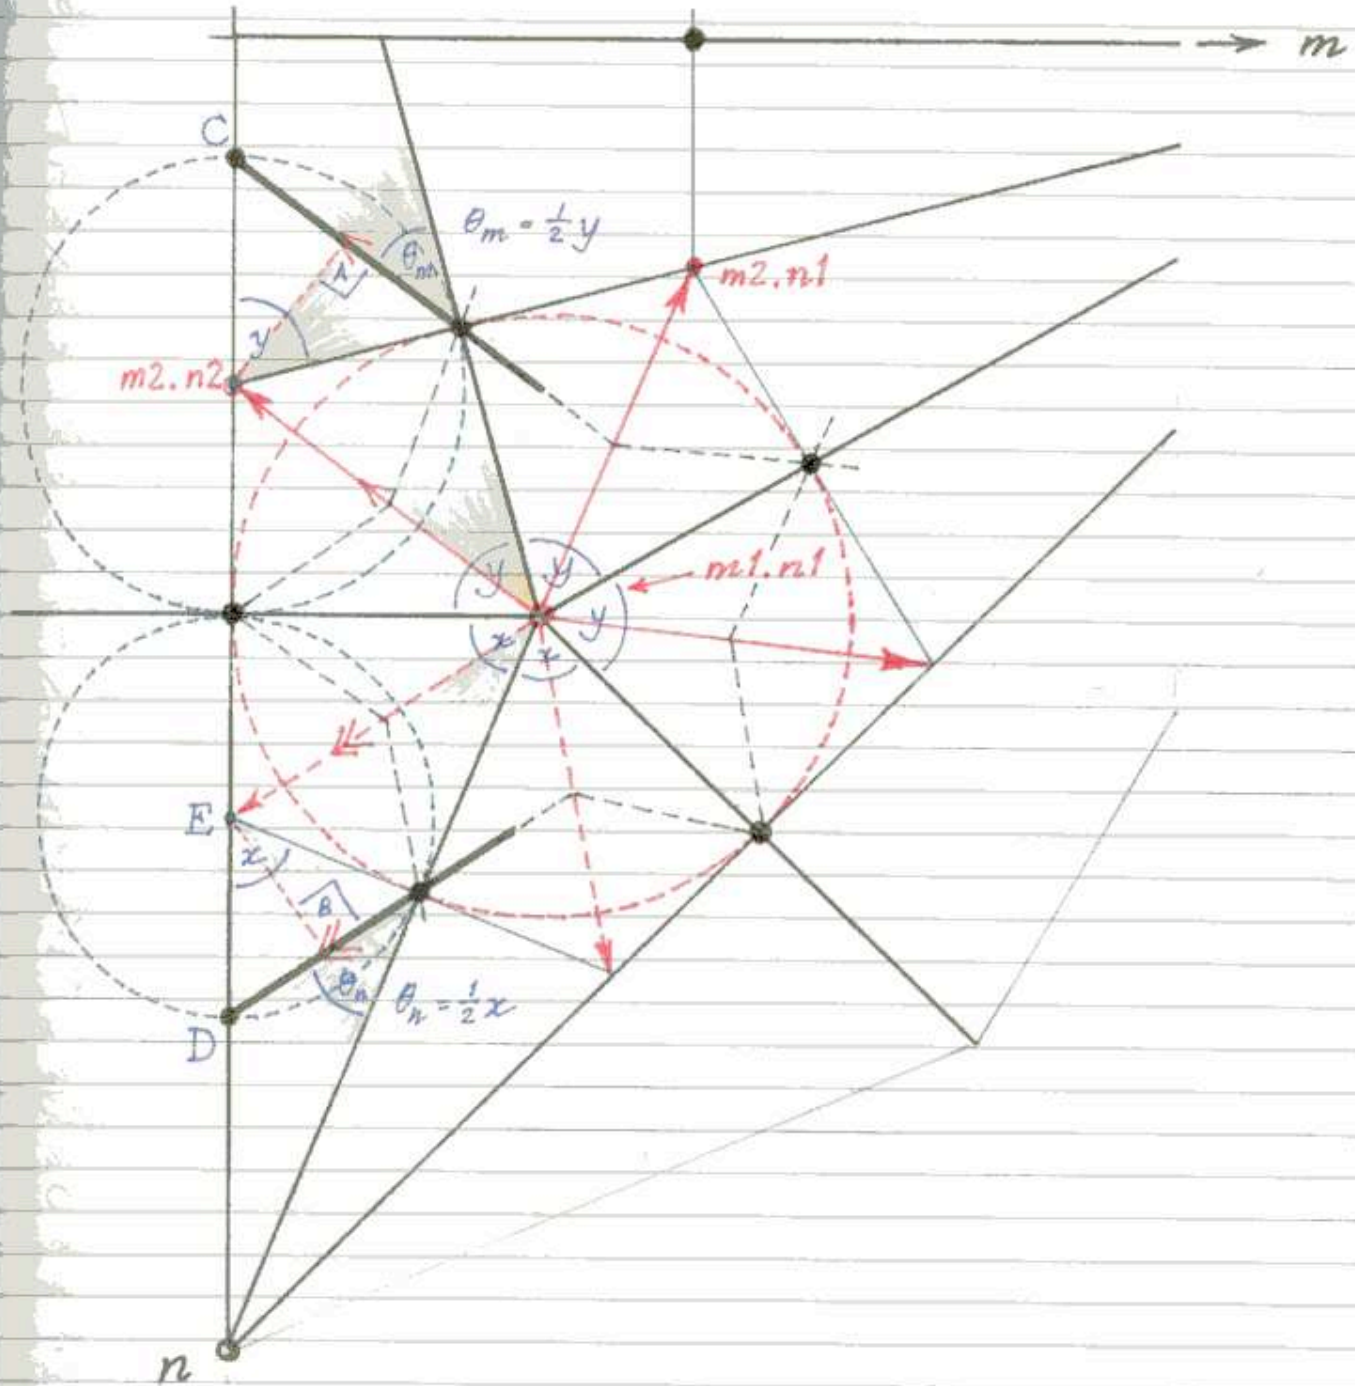 m
C
θm = ½ y
θm
A
y
m2.n1
m2.n2
y
y
m1.n1
y
x
x
E
x
B
θn
θn = ½ x
D
n